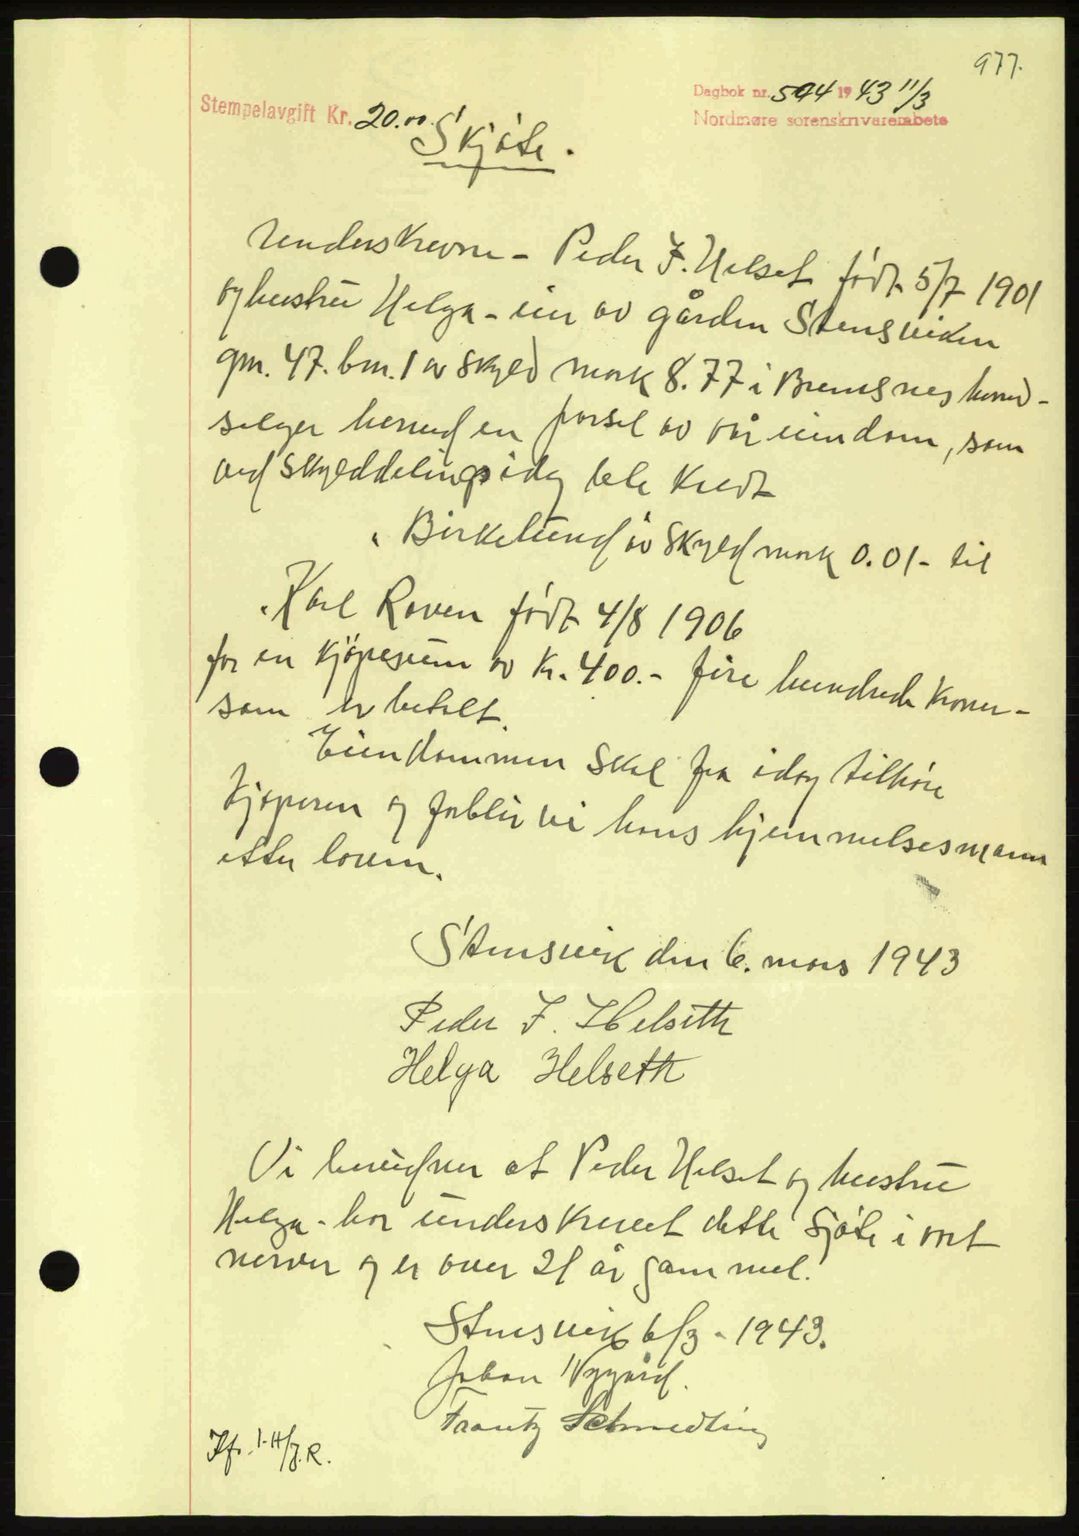 977.
Dagbok nr. 594 1943 11/3
Nordmøre sorenskriverembete
Stempelavgift Kr. 20.00
Skjöte.
Underskrevne - Peder F. Helset født 5/7 1901
og hustru Helga - eier av gården Stensviken
gnr. 47. bnr. 1 av skyld mark 8.77 i Bremsnes herred -
selger herved en parsel av vår eiendom, som
ved skylddeling idag ble kaldt
"Birkelund" av skyld mark 0.01 - til
Karl Roven født 4/8 1906
for en kjøpesum av Kr. 400.- fire hundrede kroner -
som er betalt.
Eiendommen skal fra idag tilhøre
kjøperen og forblir vi hans hjemmelsesmann
etter loven.
Stensvik den 6. mars 1943
Peder F. Helseth
Helga Helseth
Vi bevidner at Peder Helset og hustru
Helga - har underskrevet dette sjöte i vort
nerver og er over 21 år gammel.
Stensvik 6/3 - 1943.
Johan Nygård.
Frantz Schmedling